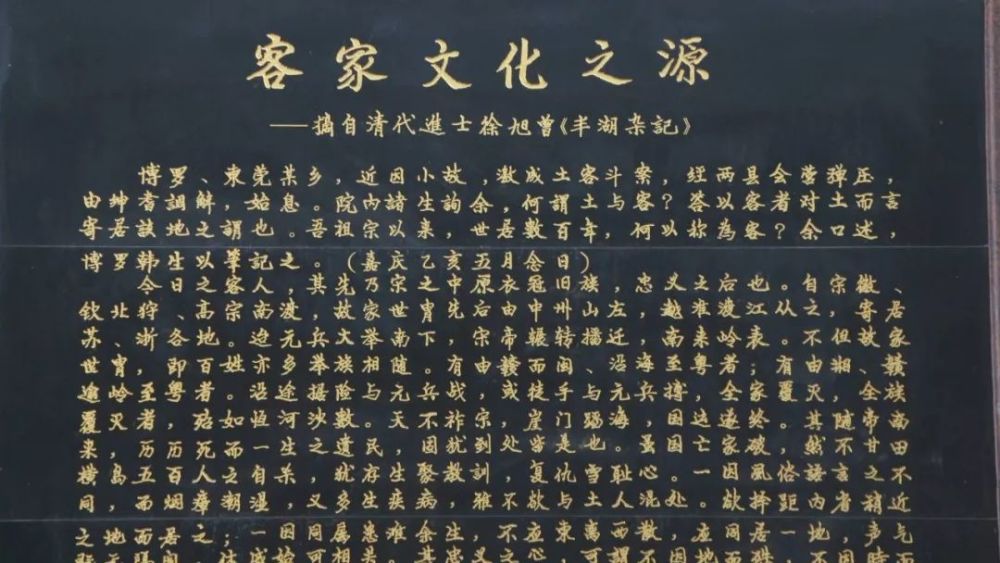 客家文化之源
——摘自清代進士徐旭曾《丰湖杂記》
博罗、東莞某乡，近因小故，激成土客斗案，经两县会营弹压，
由绅耆調解，始息。院内諸生詢余，何謂土与客？答以客者对土而言
寄居該地之謂也。吾祖宗以来，世居数百年，何以称為客？余口述，
博罗韩生以筆記之。（嘉庆乙亥五月念日）
今日之客人，其先乃宗之中原衣冠旧族，忠义之后也。自宗徽、
钦北狩、高宗南渡，故家世胄先后由中州山左，越淮渡江从之，寄居
苏、浙各地。迨元兵大举南下，宋帝辗转播迁，南来岭表。不但故家
世胄，即百姓亦多举族相随。有由赣而闽、沿海至粤者；有由湘、赣
逾岭至粤者。沿途据险与元兵战，或徒手与元兵搏，全家覆灭，全族
覆灭者，殆如恆河沙数。天不祚宗，崖门蹈海，国运遂终。其随帝南
来，历万死而一生之遗民，固犹到处皆是也。虽国亡家破，然不甘田
横岛五百人之自杀，犹存生聚教訓，复仇雪耻心。一因風俗語言之不
同，而烟瘴潮湿，又多生疾病，雅不欲与土人混处。欲择距内者稍近
之地而居之；一因同属患难余生，不应東离西散，应同居一地，声气